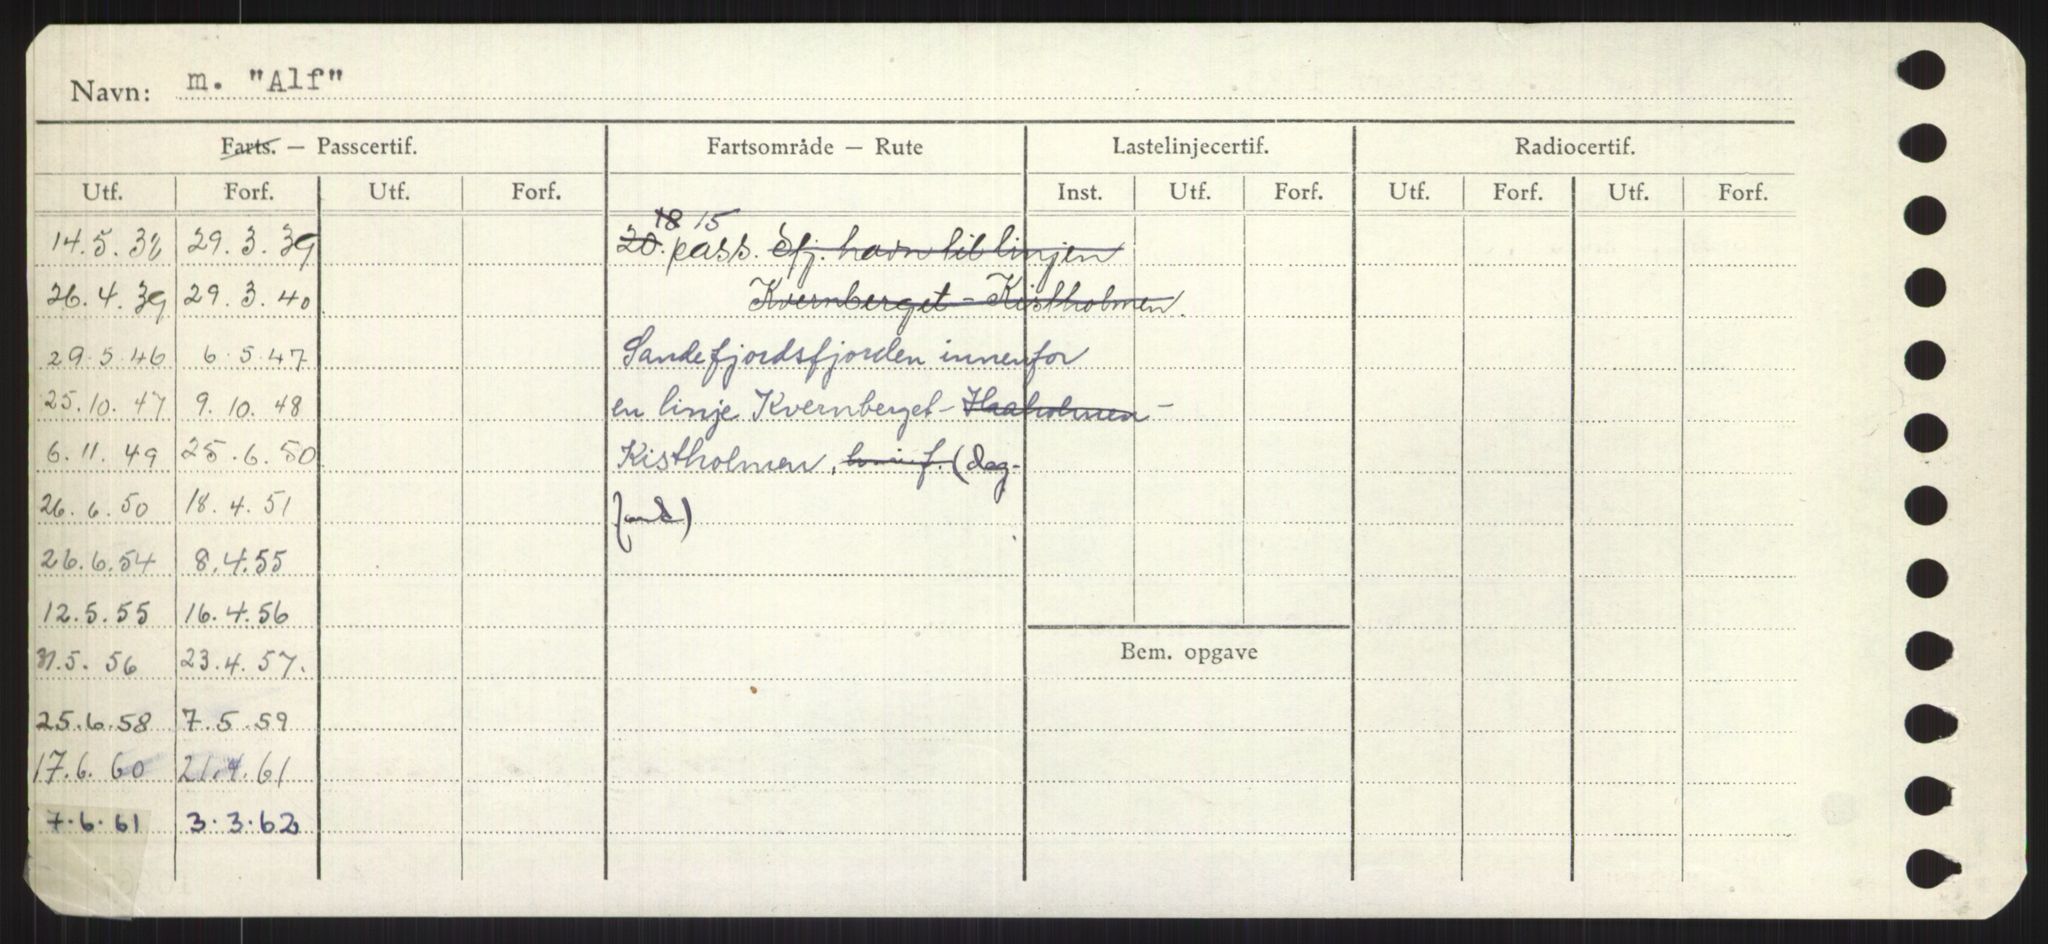 Navn: m. "Alf"
Farts. — Passcertif. Fartsområde — Rute Lastelinjecertif. Radiocertif.
Utf. Forf. Utf. Forf. Inst. Utf. Forf. Utf. Forf. Utf. Forf.
18 15
14.5.38 29.3.39 20. pass. Sfj. havn til linjen
26.4.39 29.3.40 Kvernberget - Kistholmen.
29.5.46 6.5.47 Sandefjordsfjorden innenfor
25.10.47 9.10.48 en linje Kvernberget - Haaholmen -
6.11.49 25.6.50 Kistholmen, (dag-
26.6.50 18.4.51
26.6.54 8.4.55
12.5.55 16.4.56
31.5.56 23.4.57.
Bem. opgave
25.6.58 7.5.59
17.6.60 21.4.61
7.6.61 3.3.62